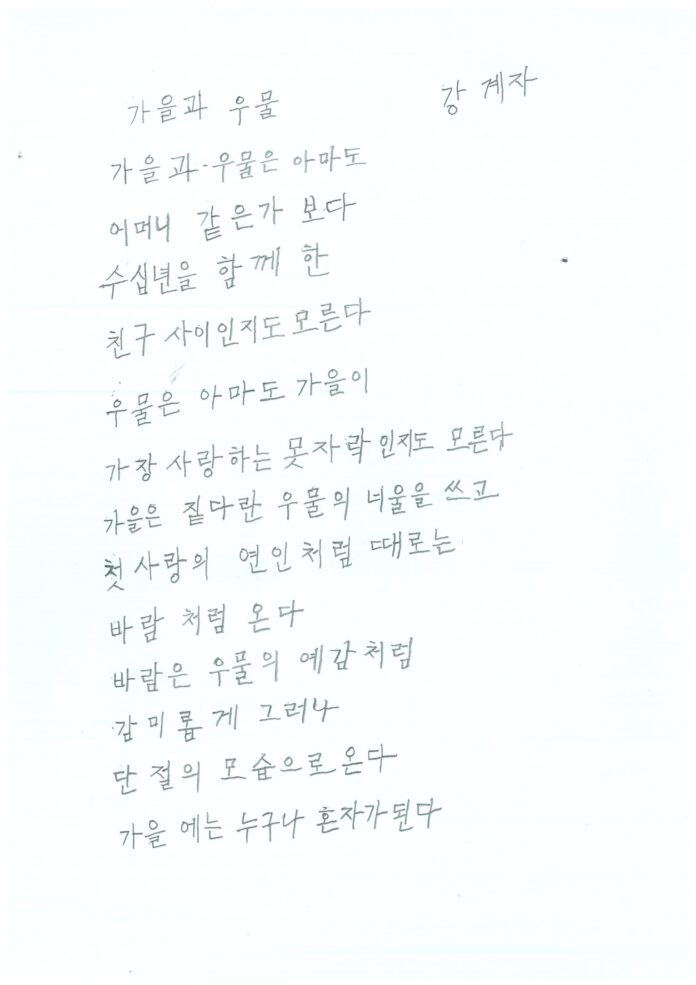 가을과 우물 강 계자
가을과·우물은 아마도
어머니 같은가 보다
수십년을 함께 한
친구 사이인지도 모른다
우물은 아마도 가을이
가장 사랑하는 못자락 인지도 모른다
가을은 짙다란 우물의 너울을 쓰고
첫사랑의 연인처럼 때로는
바람 처럼 온다
바람은 우물의 예감처럼
감미롭게 그러나
단절의 모습으로 온다
가을 에는 누구나 혼자가된다